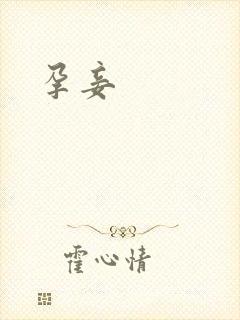 孕妾
霍心情